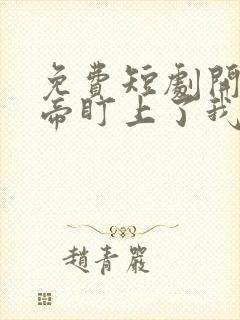 免費短劇開
帝盯上了我
趙青嚴